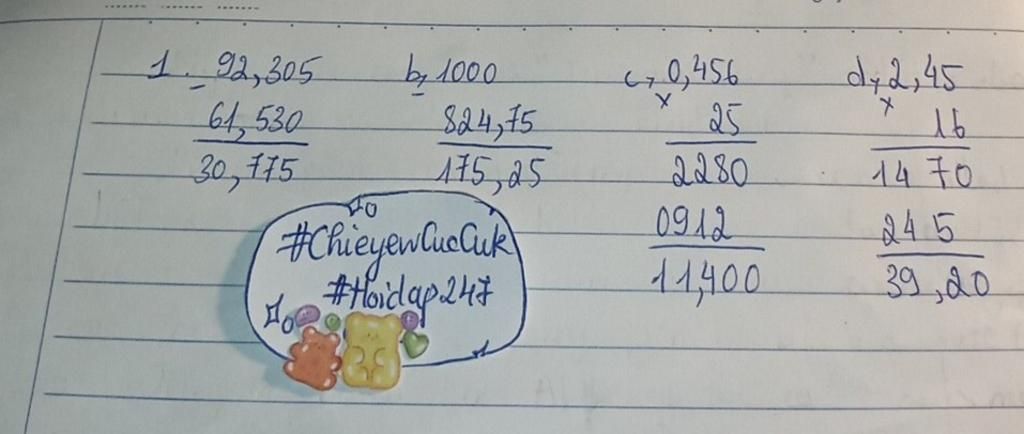 1. 92,305 b, 1000 c, 0,456 d, 2,45
- 61,530 - 824,75 x 25 x 16
30,775 175,25 2280 1470
0912 245
11,400 39,20
#ChieyewCucCuk
#Hoidap247